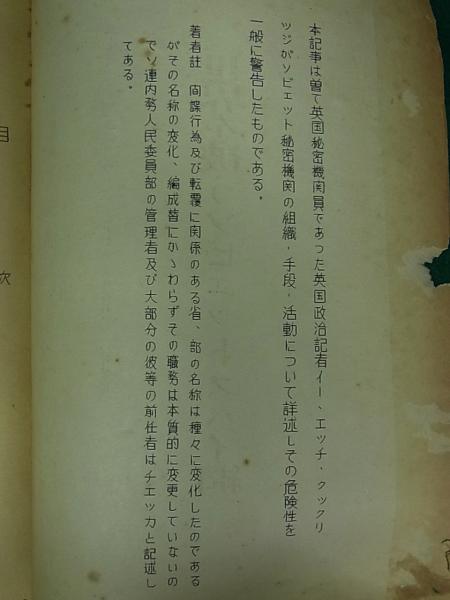 本記事は曽て英国秘密機関員であつた英国政治記者イー、エッチ・クックリ
ッジがソビェット秘密機関の組織・手段・活動について詳述しその危険性を
一般に警告したものである。
著者註　間諜行為及び転覆に関係のある省、部の名称は種々に変化したのである
がその名称の変化、編成替にかゝわらずその職務は本質的に変更していないの
でソ連内務人民委員部の管理者及び大部分の彼等の前任者はチエッカと記述し
てある。
目　次